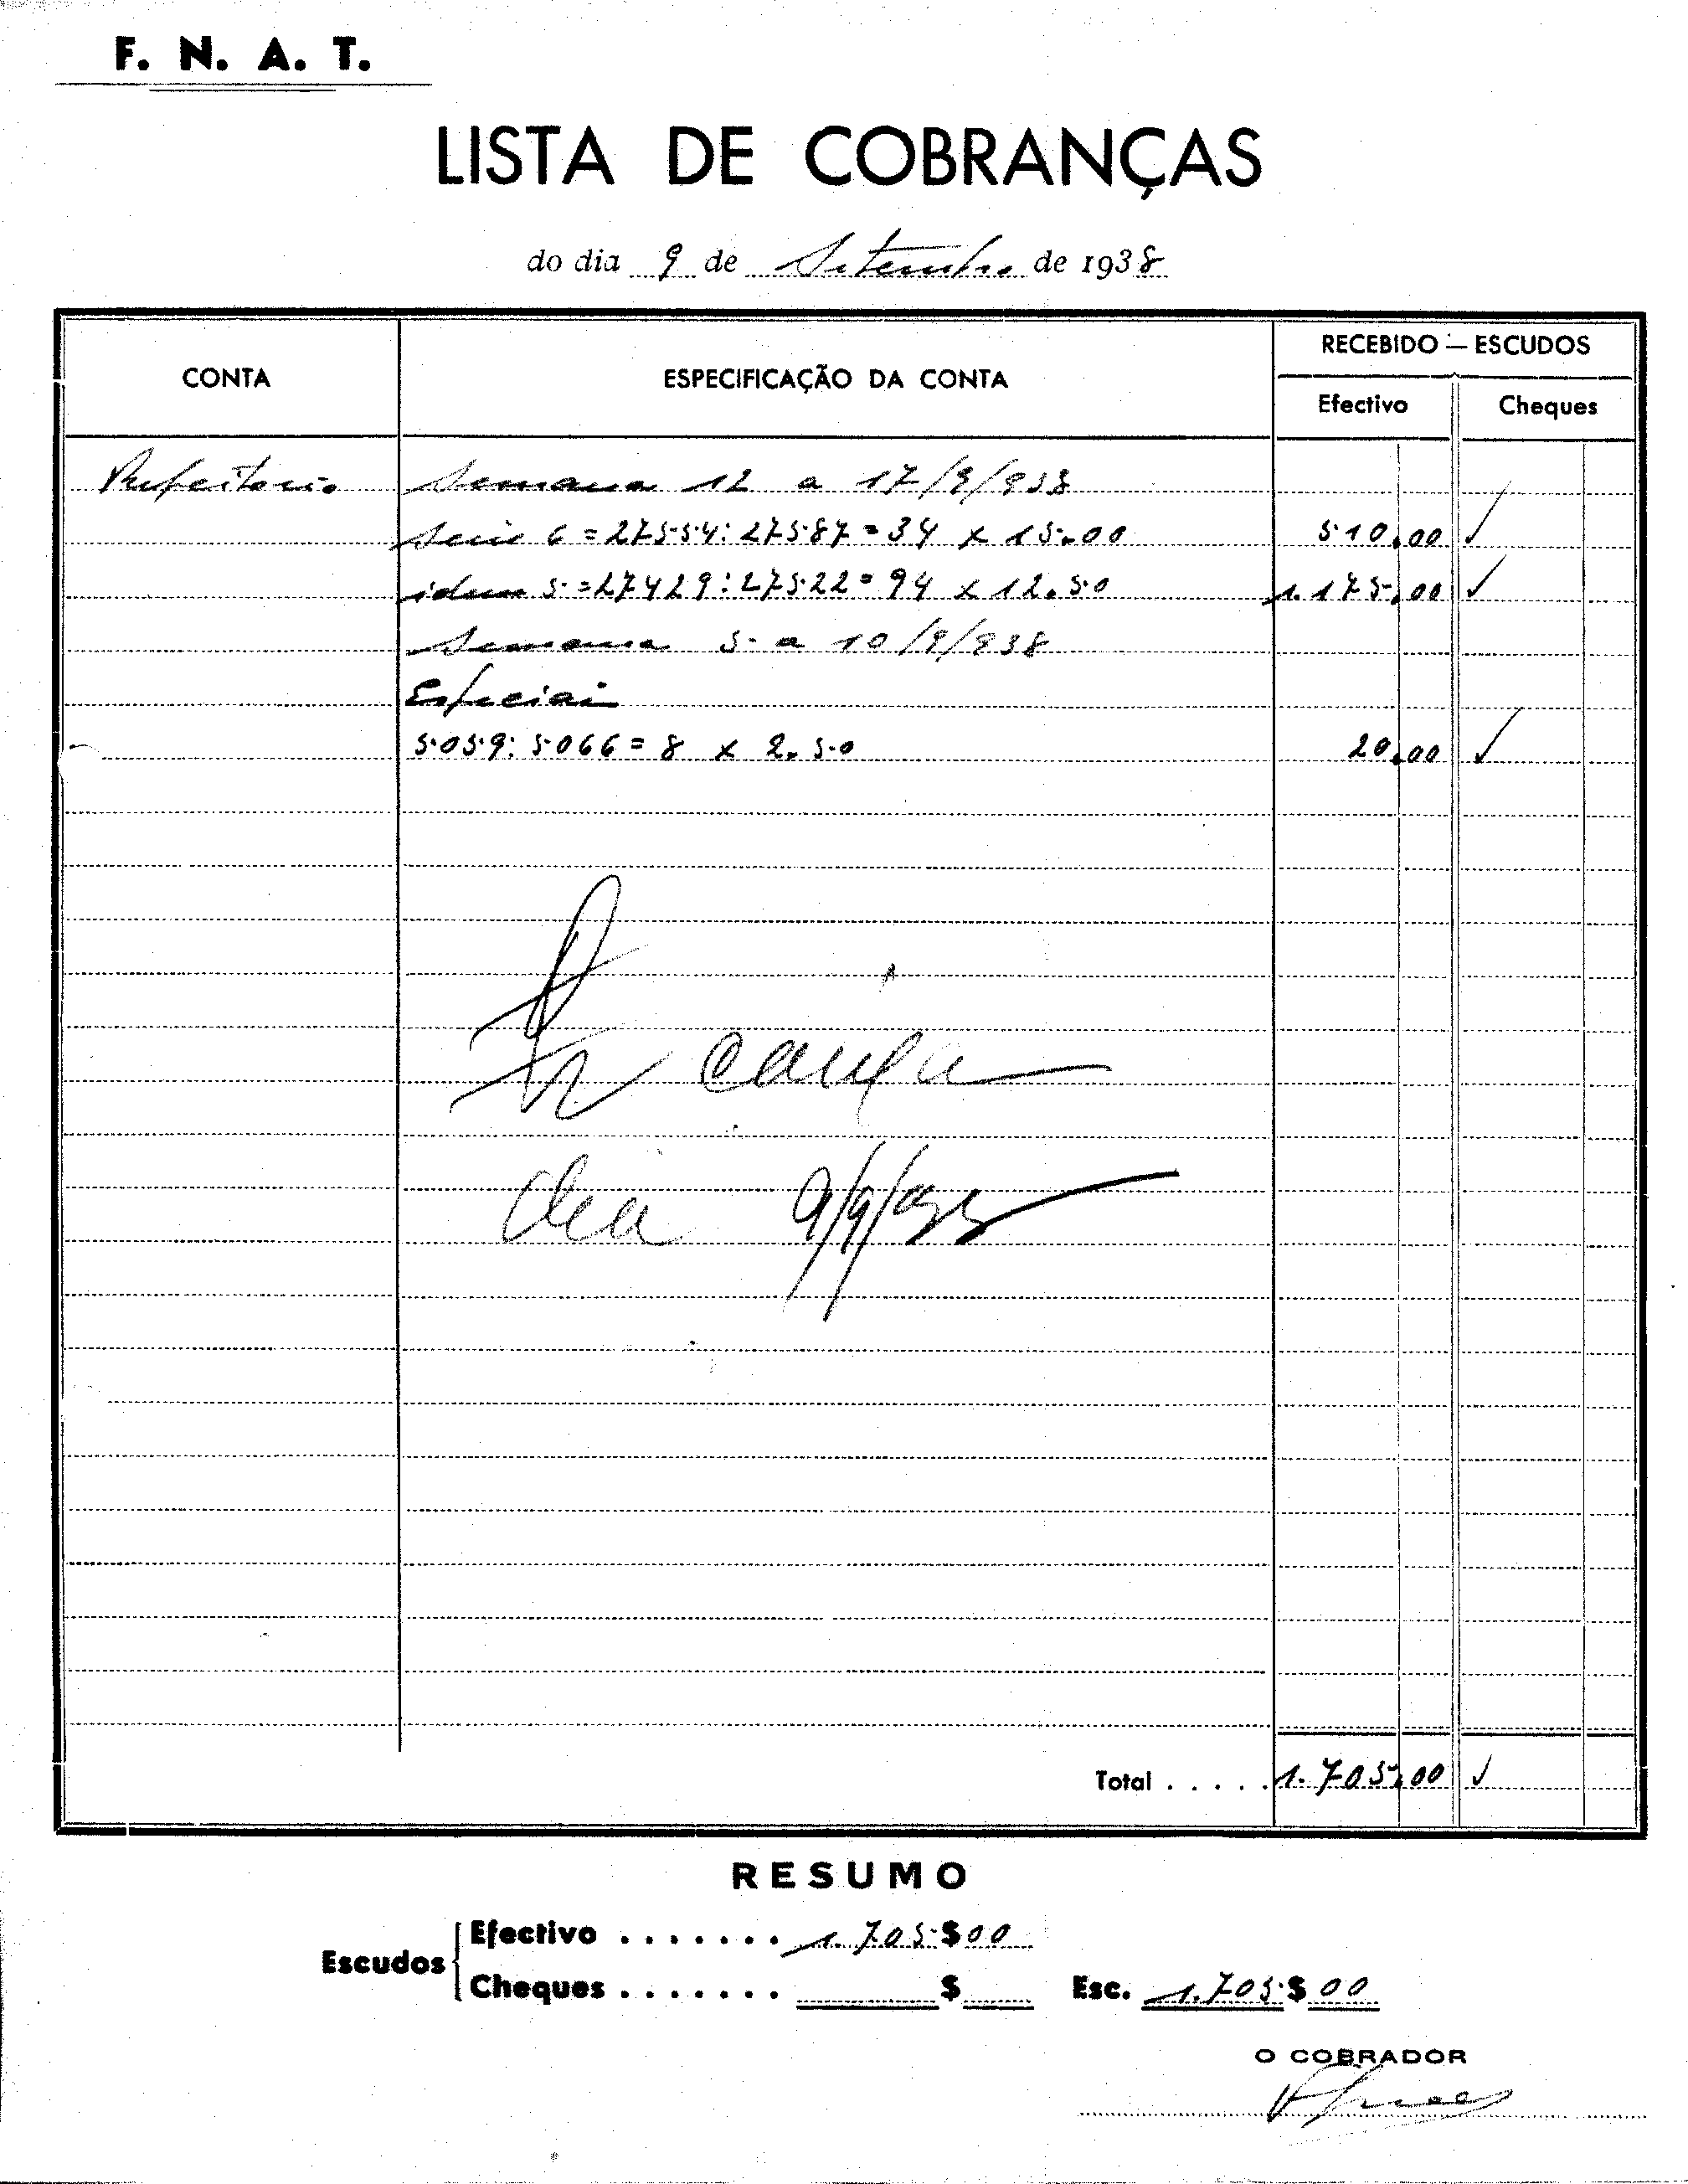 F. N. A. T.
LISTA DE COBRANÇAS
do dia 9 de Setembro de 1938
CONTA
ESPECIFICAÇÃO DA CONTA
RECEBIDO — ESCUDOS
Efectivo
Cheques
Refeitorio Semana 12 a 17/9/938
Serie 6 = 27554: 27587 = 34 x 15.00 510,00
idem 5 = 27429: 27522 = 94 x 12.50 1.175,00
Semana 5 a 10/9/938
Especiai
5059: 5066 = 8 x 2.50 20,00
caixa
dia 9/9/938
Total . . . . . 1.705,00
RESUMO
Escudos
Efectivo . . . . . . . 1.705$00
Cheques . . . . . . . $ Esc. 1.705$00
O COBRADOR